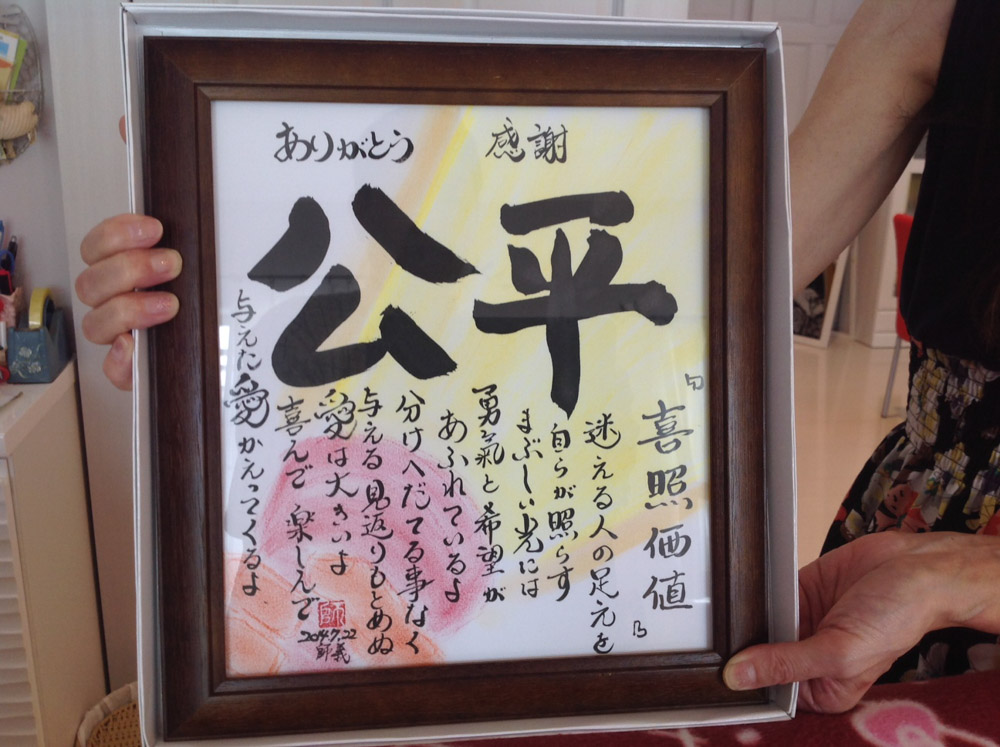 ありがとう 感謝
公平
「喜照価値」
迷える人の足元を
自らが照らす
まぶしい光には
勇氣と希望が
あふれているよ
分けへだてる事なく
与える見返りもとめぬ
愛は大きいよ
喜んで 楽しんで
与えた愛かえってくるよ
2014.7.22
師義